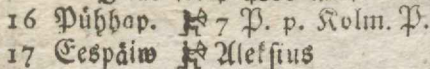 16 Pühhap. 7 P. p. Kolm. P.
17 Eespäiw Aleksius